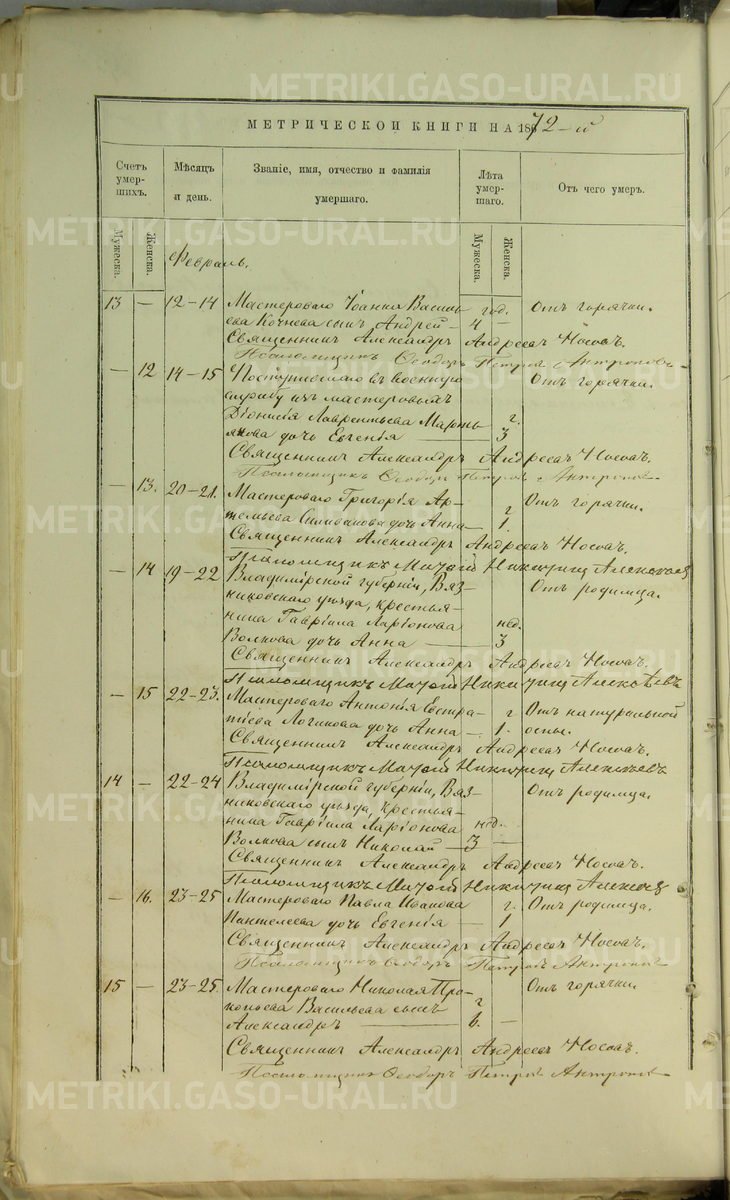 METRIKI.GASO-URAL.RU
МЕТРИЧЕСКОЙ КНИГИ НА 1872-й
Счетъ умерших. Мѣсяцъ и день. Званіе, имя, отчество и фамилія умершаго. Лѣта умершаго. Отъ чего умеръ.
Мужеска. Женска. Мужеска. Женска.
Февраль.
13 — 12–14 Мастероваго Іоанна Василь- год. Отъ горячки.
ева Кочнева сынъ Андрей — 4 —
Священникъ Александръ Андреевъ Носовъ.
Псаломщикъ Ѳеодоръ Петровъ Антроповъ
— 12 14–15 Поступившаго въ военную Отъ горячки.
службу изъ мастеровыхъ
Діонисія Лаврентьева Марть- г.
янова дочь Евгенія — 3
Священникъ Александръ Андреевъ Носовъ.
Псаломщикъ Ѳеодоръ Петровъ Антроповъ
— 13. 20–21. Мастероваго Григорія Ар- г Отъ горячки.
темьева Селиванова дочь Анна — 1.
Священникъ Александръ Андреевъ Носовъ.
Псаломщикъ Никитинъ Алексѣевъ
— 14 19–22 Владимірской губерніи, Вяз- Отъ родимца.
никовскаго уѣзда, крестья-
нина Гавріила Ларіонова нед.
Волкова дочь Анна — 3
Священникъ Александръ Андреевъ Носовъ.
Псаломщикъ Никитинъ Алексѣевъ
— 15 22–23. Мастероваго Антонія Евстра- г Отъ натуральной
тіева Логинова дочь Анна — 1. оспы.
Священникъ Александръ Андреевъ Носовъ.
Псаломщикъ Никитинъ Алексѣевъ
14 — 22–24 Владимірской губерніи, Вяз- Отъ родимца.
никовскаго уѣзда, крестья-
нина Гавріила Ларіонова нед.
Волкова сынъ Николай — 3 —
Священникъ Александръ Андреевъ Носовъ.
Псаломщикъ Никитинъ Алексѣевъ
— 16. 23–25 Мастероваго Павла Иванова г. Отъ родимца.
Пантелеева дочь Евгенія — 1
Священникъ Александръ Андреевъ Носовъ.
Псаломщикъ Ѳеодоръ Петровъ Антроповъ
15 — 23–25. Мастероваго Николая Про- Отъ горячки.
копьева Васильева сынъ г
Александръ — 6. —
Священникъ Александръ Андреевъ Носовъ.
Псаломщикъ Ѳеодоръ Петровъ Антроповъ